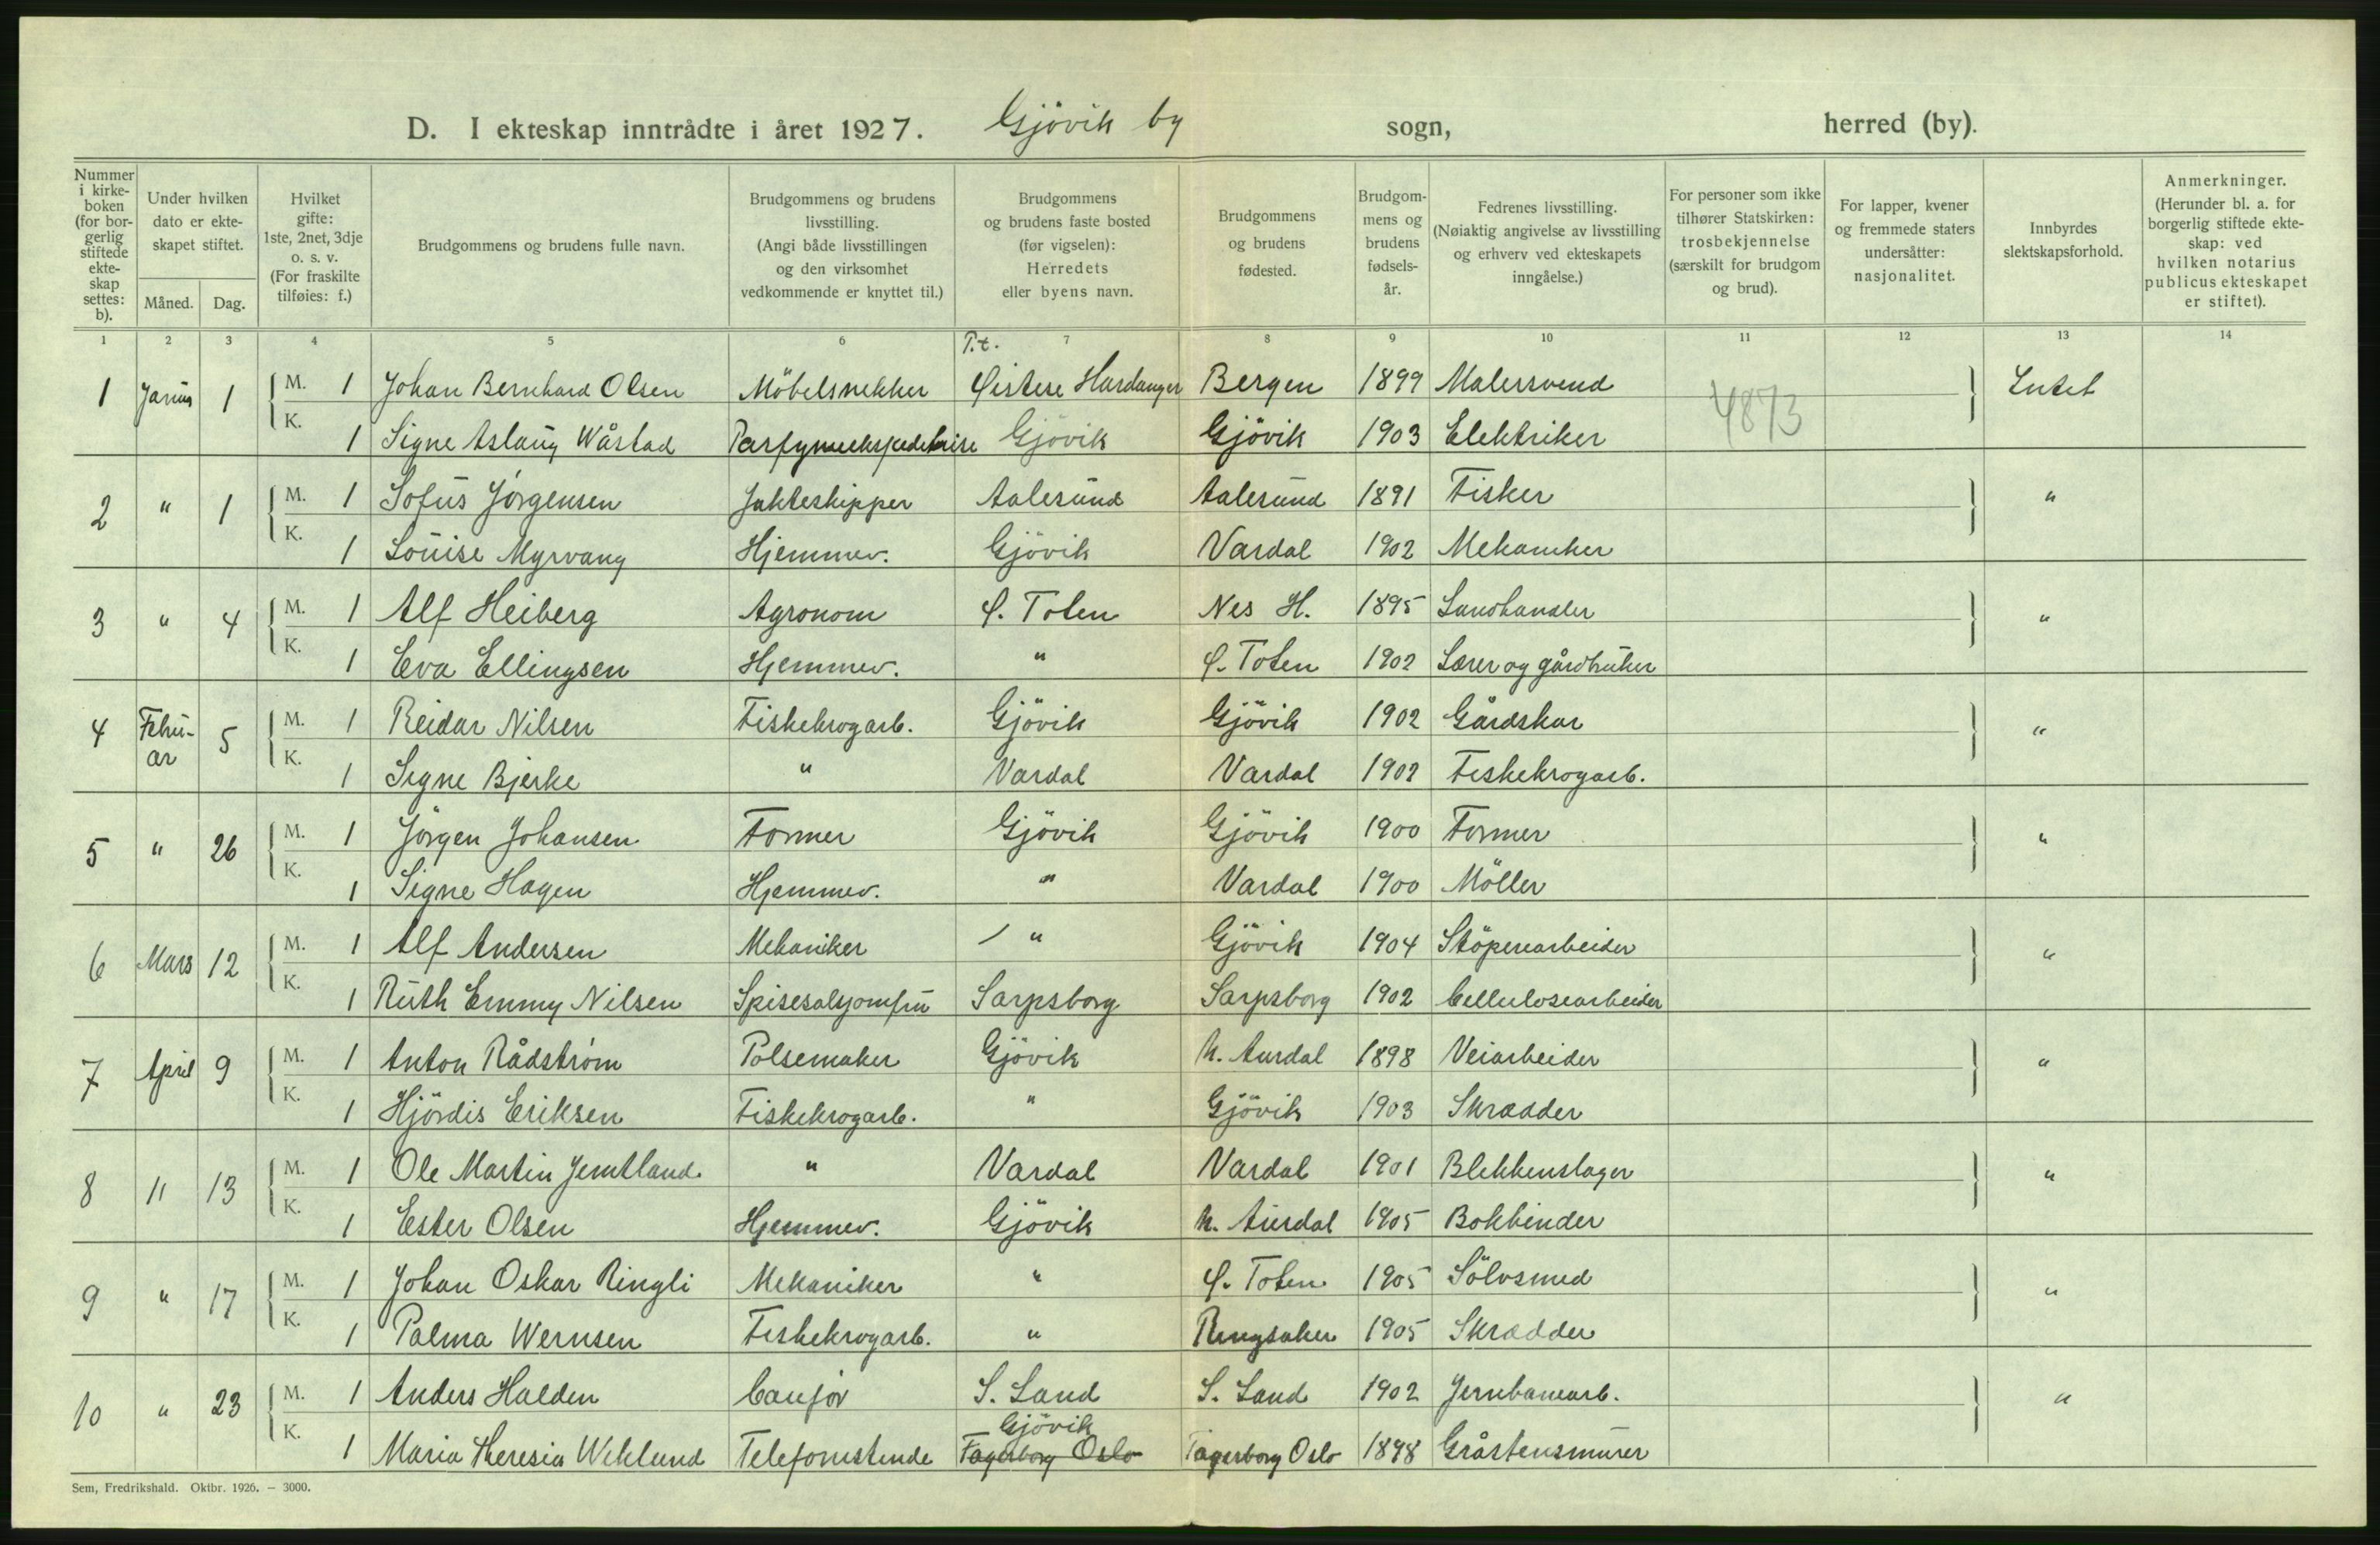 D. I ekteskap inntrådte i året 1927. Gjövik by sogn, herred (by).
Nummer i kirke-boken (for bor-gerlig stiftede ekte-skap settes: b).
Under hvilken dato er ekte-skapet stiftet.
Måned. Dag.
Hvilket gifte: 1ste, 2net, 3dje o. s. v. (For fraskilte tilføies: f.)
Brudgommens og brudens fulle navn.
Brudgommens og brudens livsstilling. (Angi både livsstillingen og den virksomhet vedkommende er knyttet til.)
Brudgommens og brudens faste bosted (før vigselen): Herredets eller byens navn.
Brudgommens og brudens fødested.
Brudgom-mens og brudens fødsels-år.
Fedrenes livsstilling. (Nøiaktig angivelse av livsstilling og erhverv ved ekteskapets inngåelse.)
For personer som ikke tilhører Statskirken: trosbekjennelse (særskilt for brudgom og brud).
For lapper, kvener og fremmede staters undersåtter: nasjonalitet.
Innbyrdes slektskapsforhold.
Anmerkninger. (Herunder bl. a. for borgerlig stiftede ekte-skap: ved hvilken notarius publicus ekteskapet er stiftet).
1 2 3 4 5 6 7 8 9 10 11 12 13 14
P.t.
1 1 M. 1 Johan Bernhard Olsen Möbelsnekker Hardanger Bergen 1899 Malersvend Intet
4873
K. 1 Signe Aslaug Wåstad Gjövik Gjövik 1903 Elektriker
2 " 1 M. 1 Sofus Jörgensen Jakteskipper Aalesund Aalesund 1891 Fisker "
K. 1 Louise Myrvang Hjemmev. Gjövik Vardal 1902 Mekaniker
3 " 4 M. 1 Alf Heiberg Agronom Ø. Toten Nes H. 1895 Landhandler "
K. 1 Eva Ellingsen Hjemmev. " Ø. Toten 1902 Lærer og gårdbruker
4 Febru-ar 5 M. 1 Reidar Nilsen Fiskekrogarb. Gjövik Gjövik 1902 Gårdskar "
K. 1 Signe Bjerke " Vardal Vardal 1902 Fiskekrogarb.
5 " 26 M. 1 Jörgen Johansen Former Gjövik Gjövik 1900 Former "
K. 1 Signe Hagen Hjemmev. " Vardal 1900 Möller
6 Mars 12 M. 1 Alf Andersen Mekaniker " Gjövik 1904 Stöperiarbeider "
K. 1 Ruth Emmy Nilsen Spisesalsjomfru Sarpsborg Sarpsborg 1902 Cellulosearbeider
7 April 9 M. 1 Anton Rådström Polsemaker Gjövik N. Aurdal 1898 Veiarbeider "
K. 1 Hjördis Eriksen Fiskekrogarb. " Gjövik 1903 Skrædder
8 " 13 M. 1 Ole Martin Jemtland " Vardal Vardal 1901 Blekkenslager "
K. 1 Ester Olsen Hjemmev. Gjövik N. Aurdal 1905 Bokbinder
9 " 17 M. 1 Johan Oskar Ringli Mekaniker " Ø. Toten 1905 Sölvsmed "
K. 1 Palma Wernsen Fiskekrogarb. " Ringsaker 1905 Skrædder
10 " 23 M. 1 Anders Halden S. Land S. Land 1902 Jernbanearb. "
Gjövik
K. 1 Maria Theresia Wiklund Telefonistinde Fagerborg Oslo Fagerborg Oslo 1898 Gråstensmurer
Sem, Fredrikshald. Oktbr. 1926. – 3000.